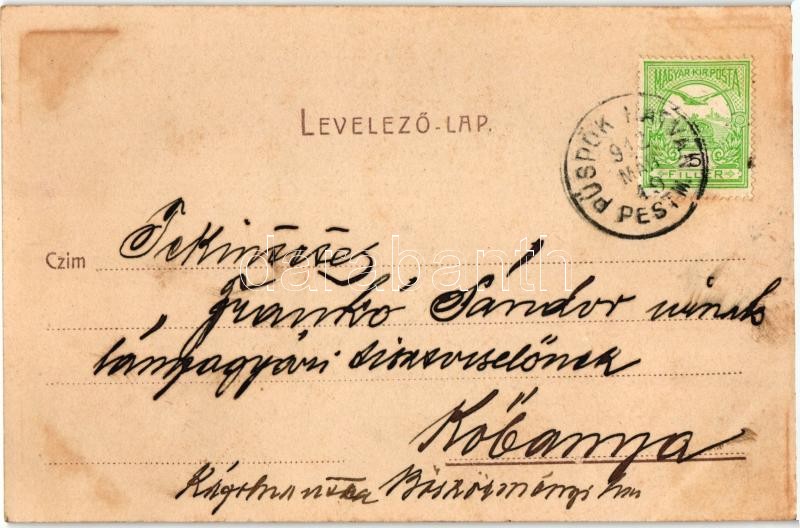 LEVELEZŐ-LAP.
MAGYAR KIR. POSTA
5
FILLER
PÜSPÖK HATVAN
MAJ
19
PEST M.
Czim
Tekintetes
Frankó Sándor úrnak
lámpagyári tisztviselőnek
Kőbanya
Böszörményi
darabanth